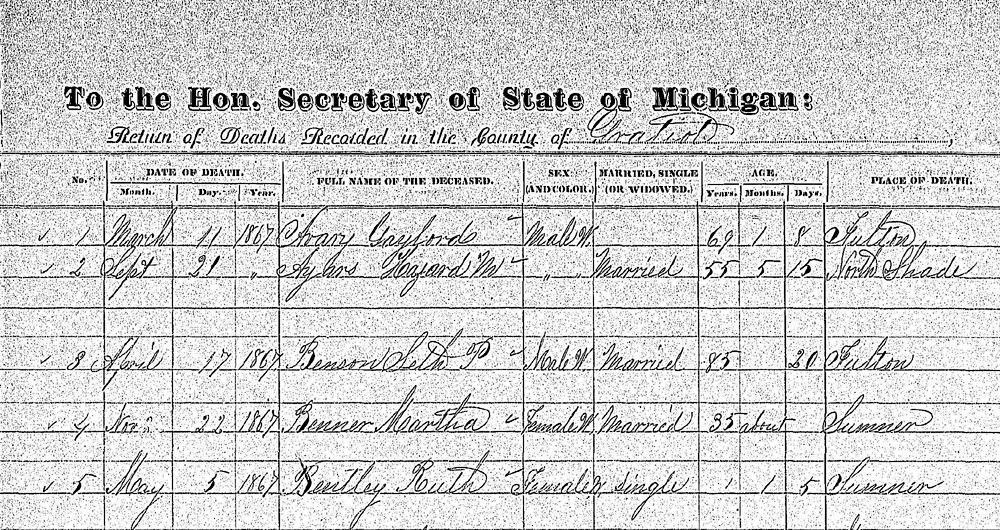 To the Hon. Secretary of State of Michigan:
Return of Deaths Recorded in the County of Gratiot,
No. DATE OF DEATH. Month. Day. Year. FULL NAME OF THE DECEASED. SEX (AND COLOR.) MARRIED, SINGLE (OR WIDOWED.) AGE. Years. Months. Days. PLACE OF DEATH.
✓ 1 March 11 1867 Avary Gayford Male W. 69 1 8 Fulton
✓ 2 Sept 21 " Ayars Hazard M " " Married 55 5 15 North Shade
✓ 3 April 17 1867 Benson Seth P Male W. Married 85 20 Fulton
✓ 4 Nov 22 1867 Benner Martha Female W. Married 35 about Sumner
✓ 5 May 5 1867 Bentley Ruth Female W single 1 1 5 Sumner